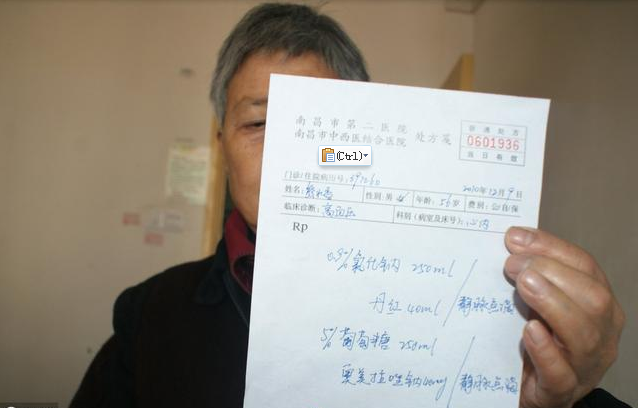 南昌市第二医院
南昌市中西医结合医院 处方笺
普通处方
0601936
当日有效
(Ctrl)
门诊/住院病历号:
2010年12月9日
姓名: 性别:男女 年龄:56岁 费别:公自保
临床诊断:高血压 科别(病室及床号):心内
Rp
0.9%氯化钠 250ml
丹红 40ml 静脉点滴
5%葡萄糖 250ml
奥美拉唑钠40mg 静脉点滴